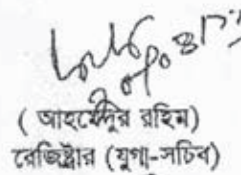 ( আহমেদুর রহিম)
রেজিষ্ট্রার (যুগ্ম-সচিব)